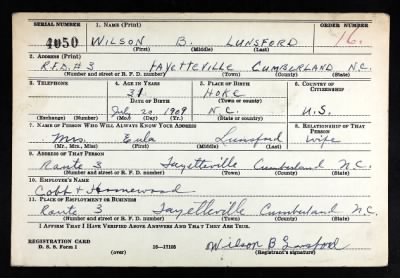 SERIAL NUMBER 1. Name (Print) ORDER NUMBER
4050 WILSON B. LUNSFORD 16.
(First) (Middle) (Last)
2. ADDRESS (Print)
R.F.D. #3 FAYETTEVILLE CUMBERLAND N.C.
(Number and street or R. F. D. number) (Town) (County) (State)
3. TELEPHONE 4. AGE IN YEARS 5. PLACE OF BIRTH 6. COUNTRY OF CITIZENSHIP
31 HOKE
DATE OF BIRTH (Town or county)
20 1909 N.C. U.S.
(Exchange) (Number) (Mo.) (Day) (Yr.) (State or country)
7. NAME OF PERSON WHO WILL ALWAYS KNOW YOUR ADDRESS 8. RELATIONSHIP OF THAT PERSON
Mrs. Eula Lunsford wife
(Mr., Mrs., Miss) (First) (Middle) (Last)
9. ADDRESS OF THAT PERSON
Route 3 Fayetteville Cumberland N.C.
(Number and street or R. F. D. number) (Town) (County) (State)
10. EMPLOYER'S NAME
Cobb + Homewood
11. PLACE OF EMPLOYMENT OR BUSINESS
Route 3 Fayetteville Cumberland N.C.
(Number and street or R. F. D. number) (Town) (County) (State)
I AFFIRM THAT I HAVE VERIFIED ABOVE ANSWERS AND THAT THEY ARE TRUE.
REGISTRATION CARD
D. S. S. Form 1 (over) 16—17105 Wilson B Lunsford
(Registrant's signature)